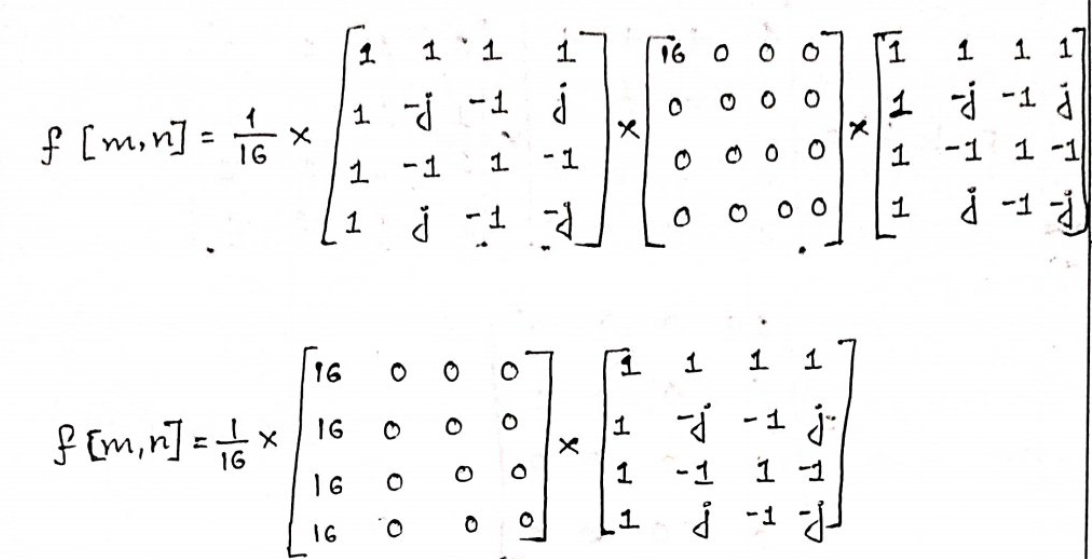 f [m,n] = 1/16 × [1 1 1 1; 1 -j -1 j; 1 -1 1 -1; 1 j -1 -j] × [16 0 0 0; 0 0 0 0; 0 0 0 0; 0 0 0 0] × [1 1 1 1; 1 -j -1 j; 1 -1 1 -1; 1 j -1 -j]
f [m,n] = 1/16 × [16 0 0 0; 16 0 0 0; 16 0 0 0; 16 0 0 0] × [1 1 1 1; 1 -j -1 j; 1 -1 1 -1; 1 j -1 -j]